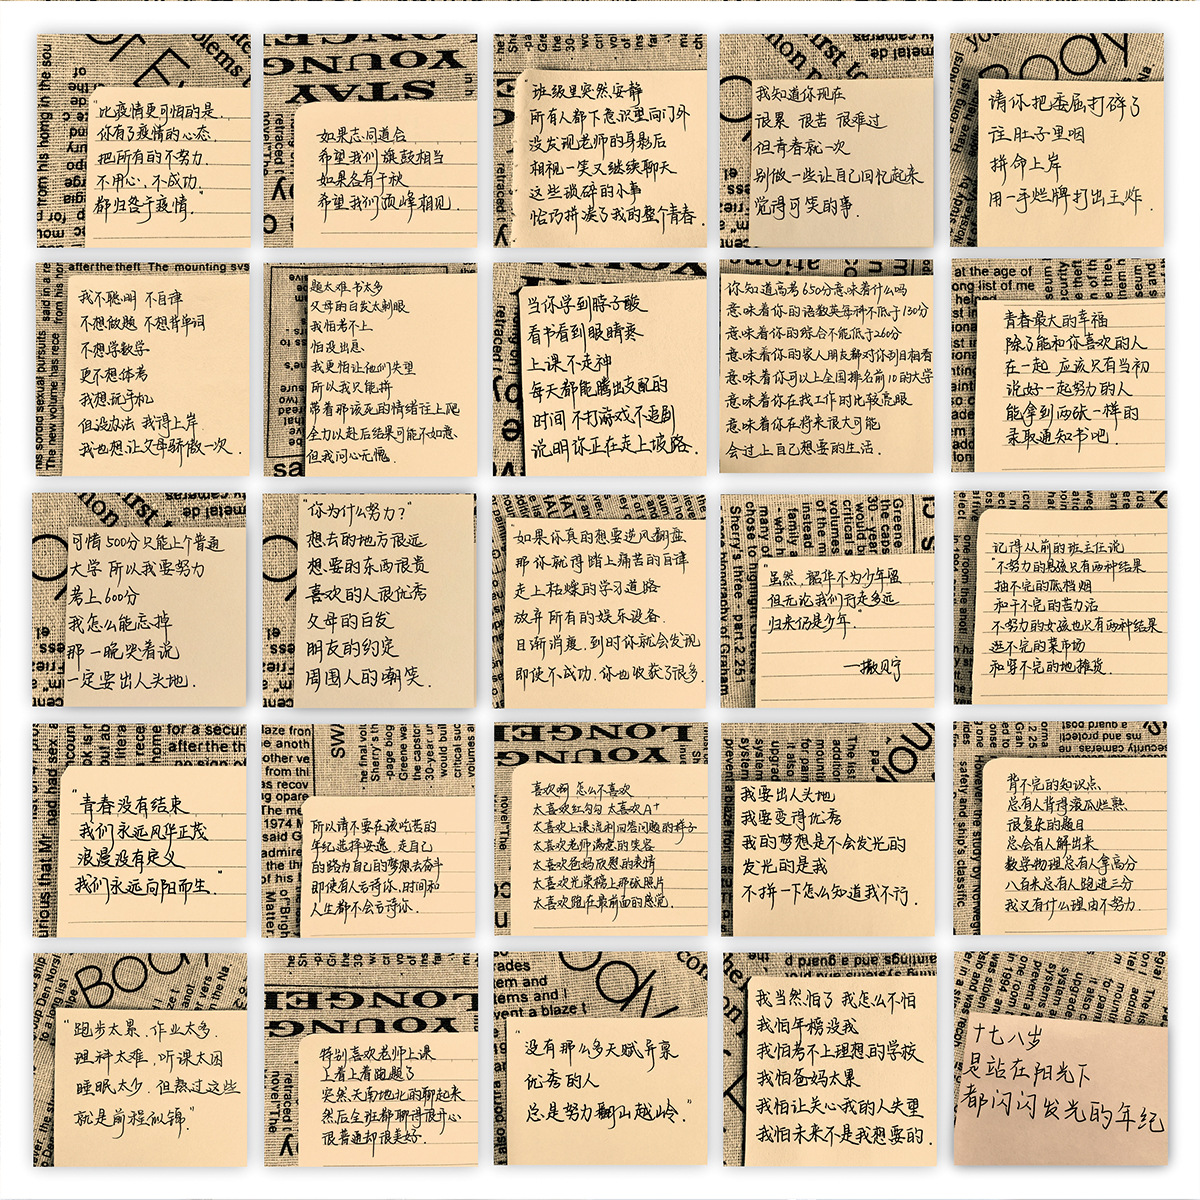 "比疫情更可怕的是.
你有了疫情的心态.
把所有的不努力.
不用心.不成功.
都归咎于疫情."
如果志同道合
希望我们旗鼓相当
如果各有千秋
希望我们顶峰相见.
班级里突然安静
所有人都下意识里向门外
没发现老师的身影后
相视一笑又继续聊天
这些琐碎的小事
恰巧拼凑了我的整个青春.
我知道你现在
很累 很苦 很难过
但青春就一次
别做一些让自己回忆起来
觉得可笑的事.
请你把委屈打碎了
往肚子里咽
拼命上岸
用一手烂牌打出王炸.
我不聪明 不自律
不想做题 不想背单词
不想学数学
更不想体考
我想玩手机
但没办法 我得上岸.
我也想让父母骄傲一次.
题太难.书太多
父母的白发太刺眼
我怕考不上.
怕没出息.
我更怕让他们失望
所以我只能拼
带着那该死的情绪往上爬
全力以赴后结果可能不如意.
但我问心无愧.
当你学到脖子酸
看书看到眼睛疼
上课不走神
每天都能腾出支配的
时间 不打游戏不追剧
说明你正在走上坡路.
你知道高考650分意味着什么吗
意味着你的语数英每科不低于130分
意味着你的综合不能低于260分
意味着你的家人朋友都对你刮目相看
意味着你可以上全国排名前10的大学
意味着你在找工作时比较亮眼
意味着你在将来很大可能
会过上自己想要的生活.
青春最大的幸福
除了能和你喜欢的人
在一起 应该只有当初
说好一起努力的人
能拿到两张一样的
录取通知书吧.
可惜500分只能上个普通
大学 所以我要努力
考上600分
我怎么能忘掉
那一晚哭着说
一定要出人头地.
"你为什么努力?"
想去的地方很远
想要的东西很贵
喜欢的人很优秀
父母的白发
朋友的约定
周围人的嘲笑.
"如果你真的想要逆风翻盘
那你就得踏上痛苦的自律
走上枯燥的学习道路
放弃所有的娱乐设备.
日渐消瘦.到时你就会发现
即使不成功.你也收获了很多."
"虽然,韶华不为少年留
但无论我们行走多远
归来仍是少年."
一撒贝宁
记得从前的班主任说
"不努力的男孩只有两种结果
抽不完的低档烟
和干不完的苦力活
不努力的女孩也只有两种结果
逛不完的菜市场
和穿不完的地摊货.
"青春没有结束
我们永远风华正茂
浪漫没有定义
我们永远向阳而生."
所以请不要在该吃苦的
年纪选择安逸.走自己
的路为自己的梦想去奋斗
即使有人亏待你.时间和
人生都不会亏待你.
喜欢啊 怎么不喜欢
太喜欢红勾勾 太喜欢A+
太喜欢上课流利回答问题的样子
太喜欢老师满意的笑容
太喜欢爸妈欣慰的表情
太喜欢光荣榜上那张照片
太喜欢跑在最前面的感觉.
我要出人头地
我要变得优秀
我的梦想是不会发光的
发光的是我
不拼一下怎么知道我不行.
背不完的知识点.
总有人背得滚瓜烂熟.
很复杂的题目
总会有人解出来
数学物理总有人拿高分
八百米总有人跑进三分
我又有什么理由不努力.
"跑步太累.作业太多.
理科太难.听课太困
睡眠太少.但熬过这些
就是前程似锦"
特别喜欢老师上课
上着上着跑题了
突然天南地北的聊起来
然后全班都聊得很开心
很普通却很美好.
"没有那么多天赋异禀
优秀的人
总是努力翻山越岭."
我当然怕了 我怎么不怕
我怕年榜没我
我怕考不上理想的学校
我怕爸妈太累
我怕让关心我的人失望
我怕未来不是我想要的.
十七八岁
是站在阳光下
都闪闪发光的年纪